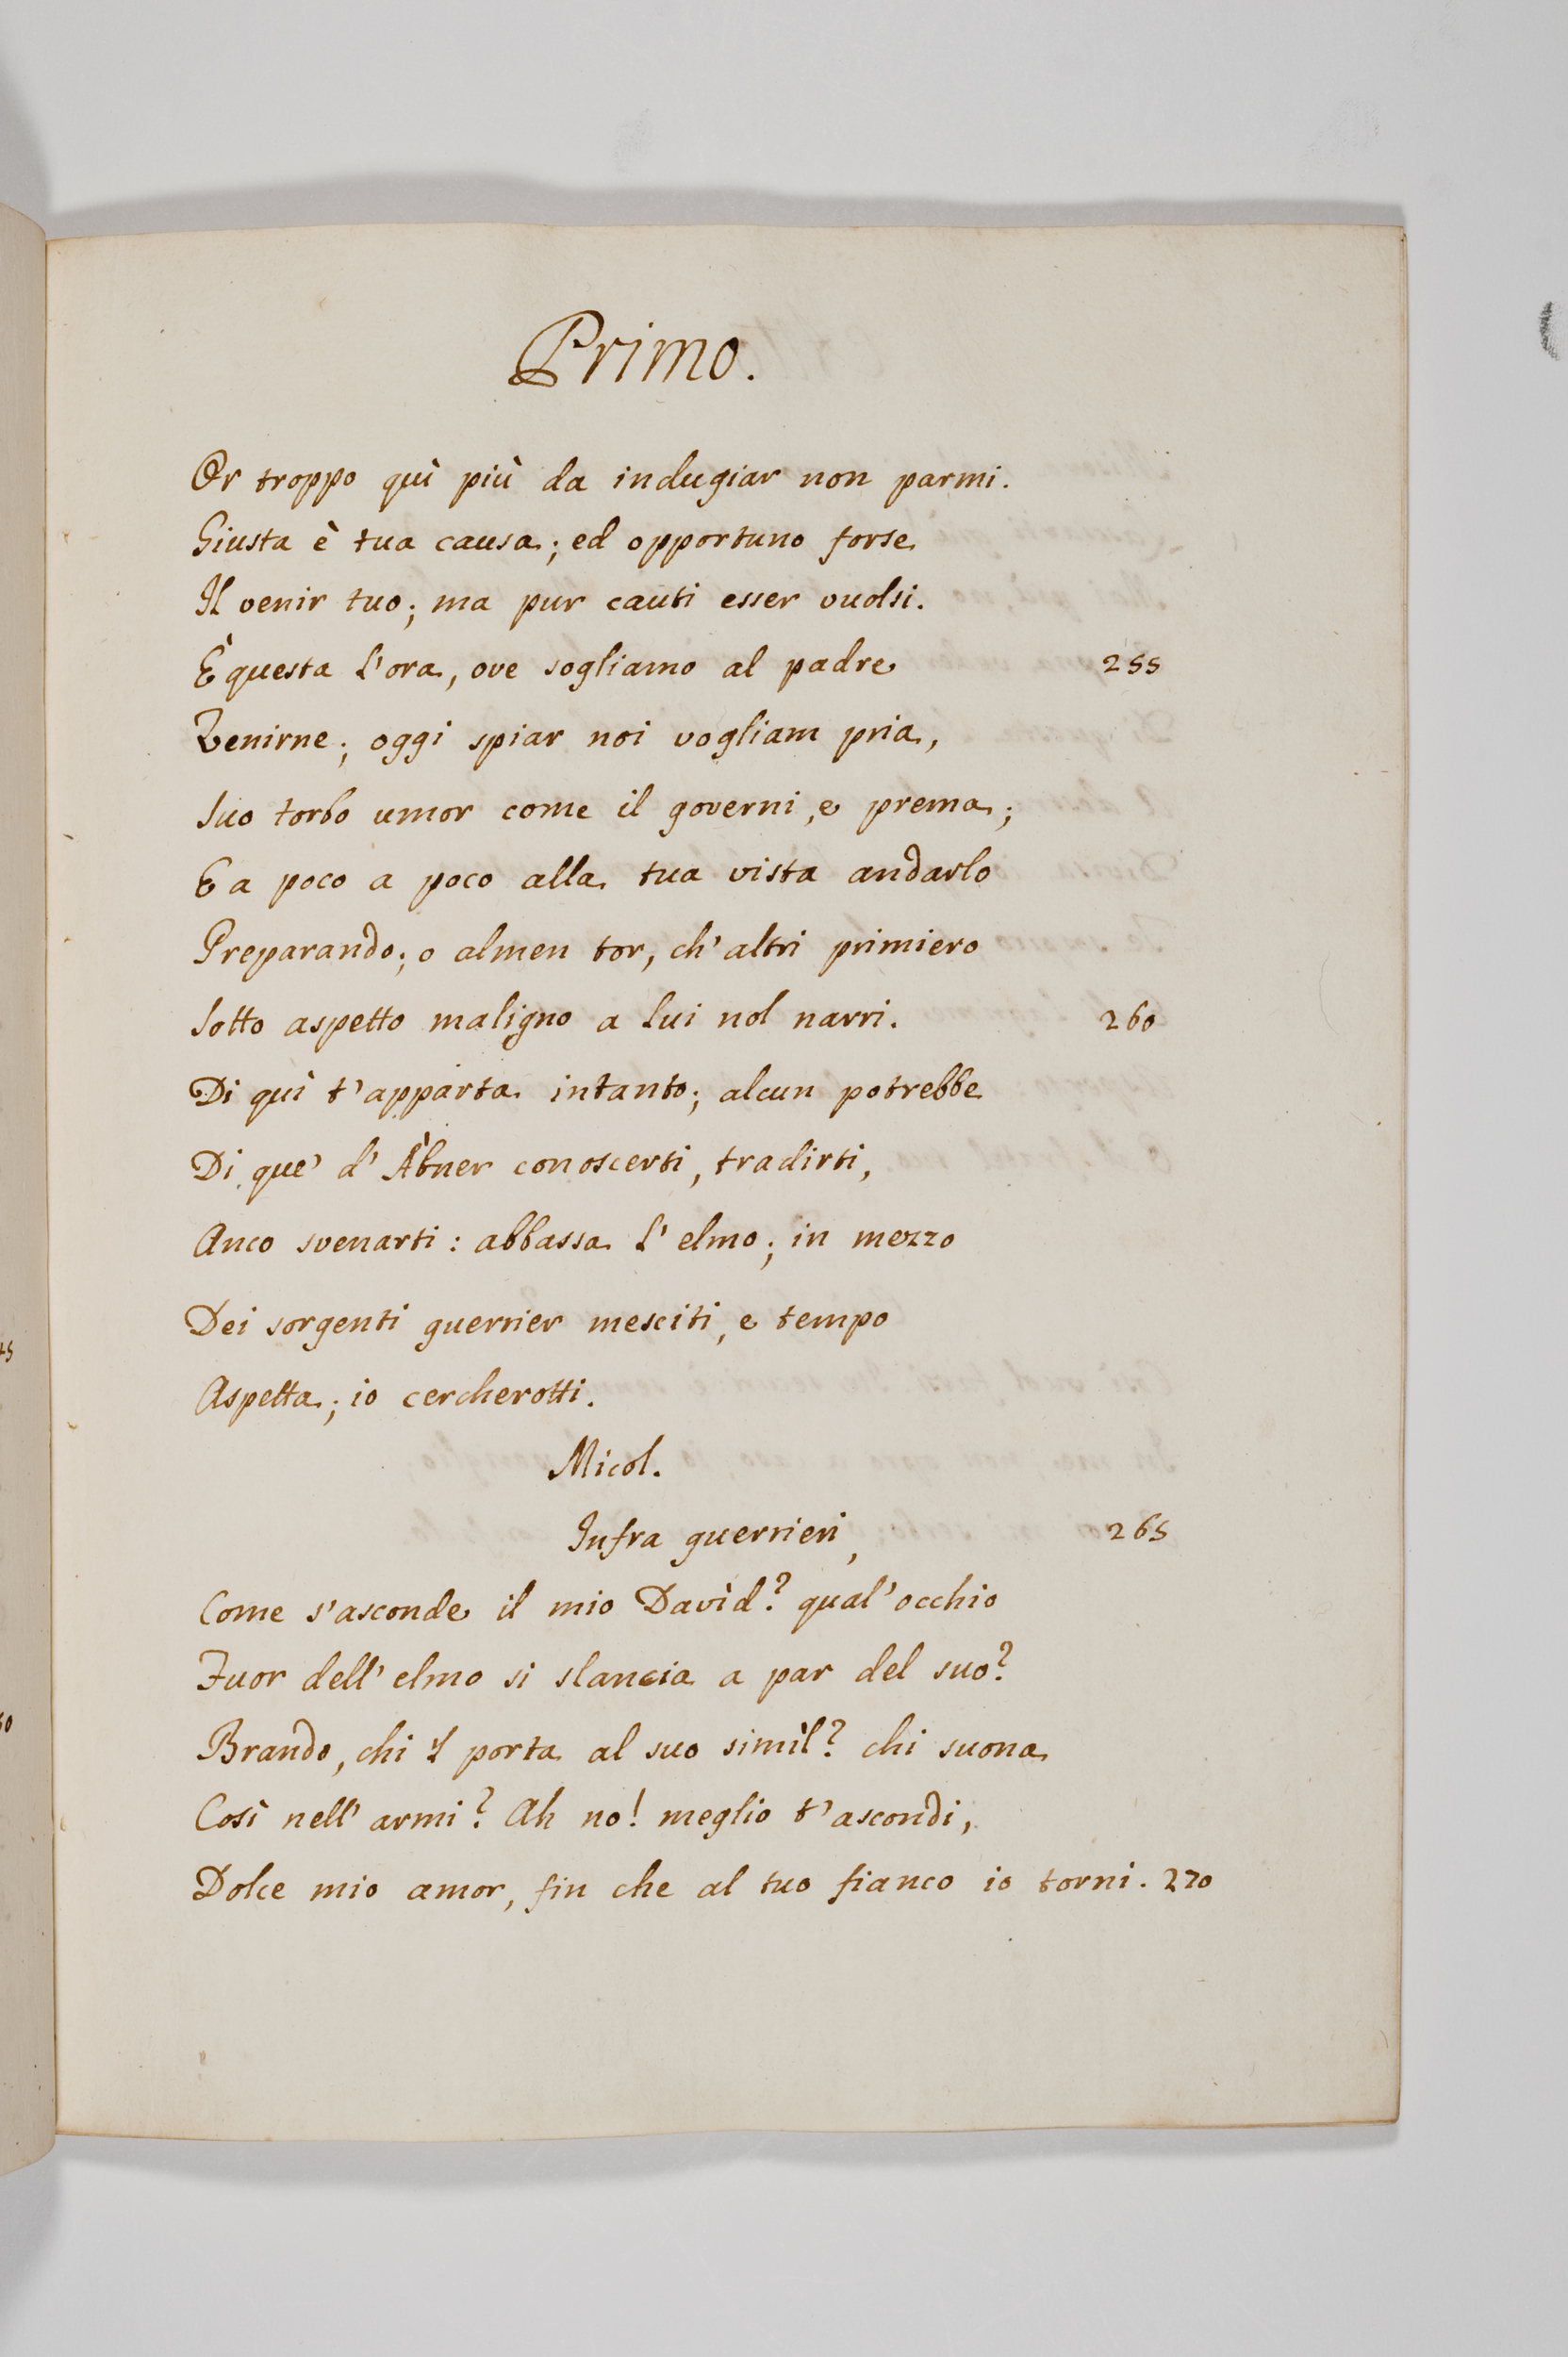 Primo.
Or troppo quì più da indugiar non parmi.
Giusta è tua causa; ed opportuno forse
Il venir tuo; ma pur cauti esser vuolsi.
È questa l'ora, ove sogliamo al padre 255
Venirne; oggi spiar noi vogliam pria,
Suo torbo umor come il governi, e prema;
E a poco a poco alla tua vista andarlo
Preparando; o almen tor, ch'altri primiero
Sotto aspetto maligno a lui nol narri. 260
Di quì t'apparta intanto; alcun potrebbe
Di que' d'Àbner conoscerti, tradirti,
Anco svenarti: abbassa l'elmo; in mezzo
Dei sorgenti guerrier mesciti, e tempo
Aspetta; io cercherotti.
Micol.
Infra guerrieri, 265
Come s'asconde il mio Davìd? qual'occhio
Fuor dell'elmo si slancia a par del suo?
Brando, chi 'l porta al suo simìl? chi suona
Così nell'armi? Ah no! meglio t'ascondi,
Dolce mio amor, fin che al tuo fianco io torni. 270